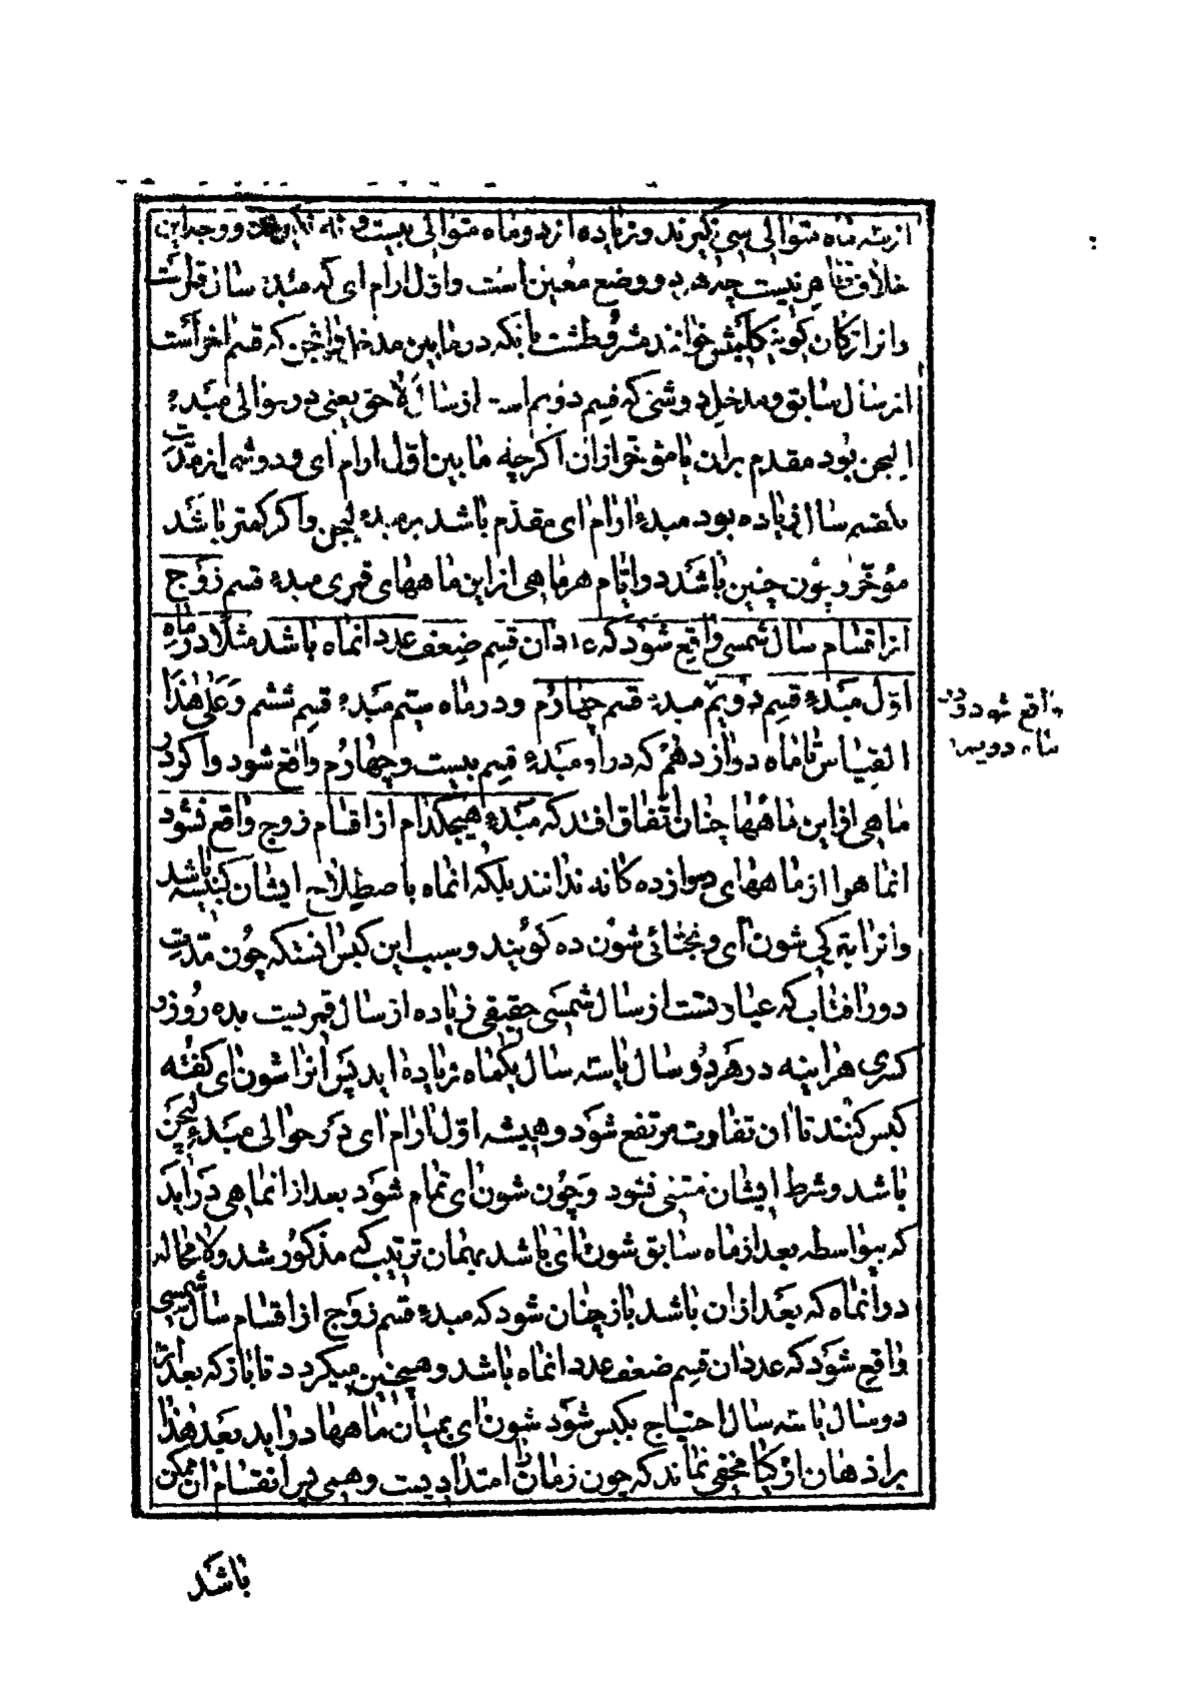 از سه ماه متوالی سی نگیرند و زیاده از دو ماه متوالی بیست و نه نگیرند و وجه این
خلاف ظاهر نیست چه هر دو وضع معین است و اول ارام ای که مبدء سال قمریست
وانرا ترکان کونه کلمیش خوانند مشروطست بانکه در مابین مدخل لیجن که قسم اخر است
از سال سابق و مدخل دوشنی که قسم دویم است از سال لاحق یعنی در حوالی مبدء
لیجن بود مقدم بران یا مؤخر ازان اکر چه مابین اول ارام ای و دوشنی از مدت
یکقسم سال زیاده بود مبدء ارام ای مقدم باشد بر مبدء لیجن و اکر کمتر باشد
مؤخر و چون چنین باشد در ایام هر ماهی از این ماههای قمری مبدء قسم زوج
از اقسام سال شمسی واقع شود که عدد ان قسم ضعف عدد انماه باشد مثلا در ماه
اول مبدء قسم دویم مبدء قسم چهارم و در ماه سیم مبدء قسم ششم و علی هذا
القیاس تا ماه دوازدهم که در او مبدء قسم بیست و چهارم واقع شود و اکر در
ماهی از این ماهها چنان اتفاق افتد که مبدء هیچکدام از اقسام زوج واقع نشود
انماه را از ماههای دوازده کانه ندانند بلکه انماه باصطلاح ایشان کبیسه باشد
وانرا بترکی شون ای و بختائی شون ده کویند و سبب این کبس انستکه چون مدت
دور افتاب که عبارتست از سال شمسی حقیقی زیاده از سال قمریست بده روز و
کسری هراینه در هر دو سال یا سه سال یکماه زیاده اید پس انرا شون ای کفته
کبس کنند تا ان تفاوت مرتفع شود و همیشه اول ارام ای در حوالی مبدء لیجن
باشد و شرط ایشان منتفی نشود و چون شون ای تمام شود بعد از انماهی دراید
که بیواسطه بعد از ماه سابق شون ای باشد بهمان ترتیب که مذکور شد و لا محاله
در انماه که بعد ازان باشد باز چنان شود که مبدء قسم زوج از اقسام سال شمسی
واقع شود که عدد ان قسم ضعف عدد انماه باشد و همچنین میکردد تا باز که بعد از
دو سال یا سه سال احتیاج بکبس شود شون ای بمیان ماهها دراید بعد هذا
بر اذهان ازکیا مخفی نماند که چون زمان امتدادیست وهمی پس انقسام ان ممکن
باشد
واقع شود و در
ماه دویم